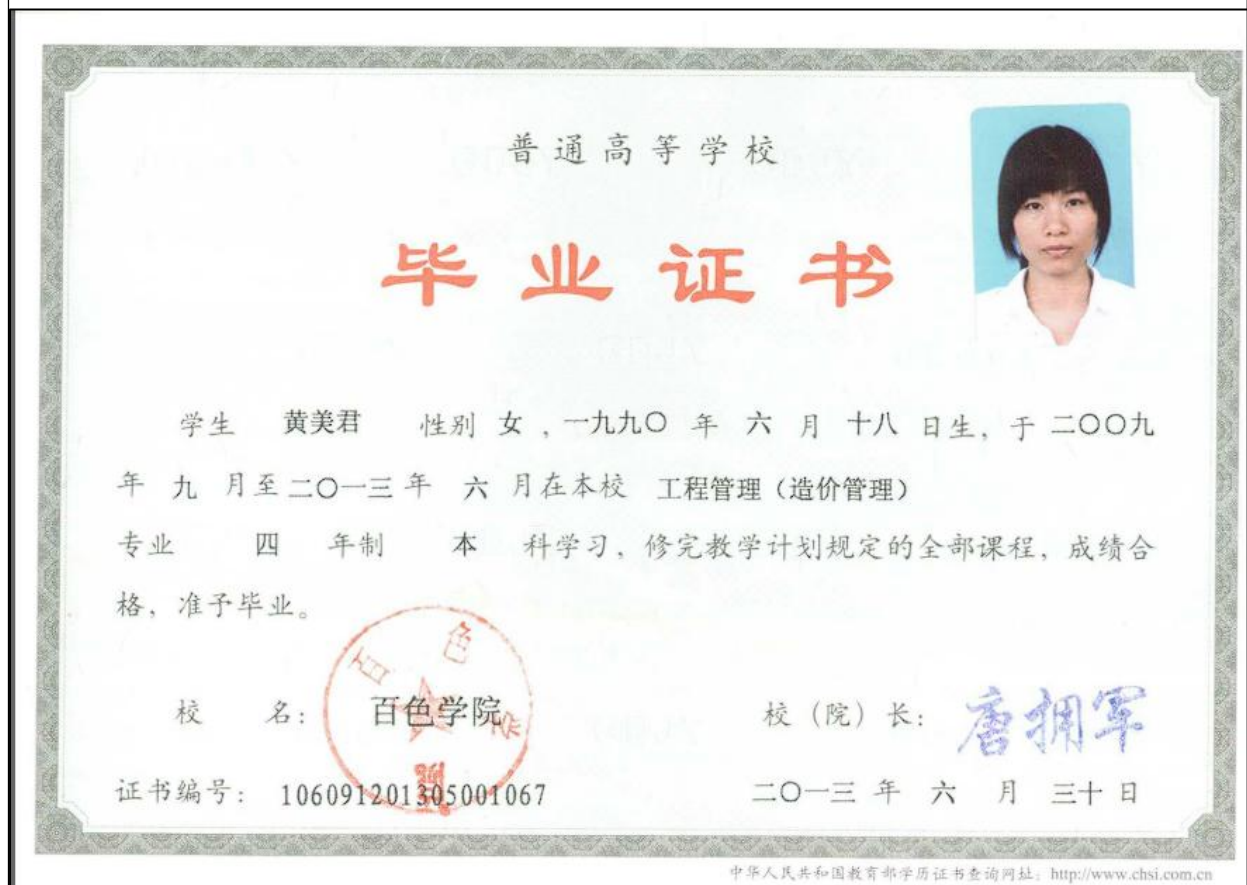 普通高等学校
毕业证书
学生 黄美君 性别 女，一九九〇 年 六 月 十八 日生，于 二〇〇九
年 九 月至 二〇一三 年 六 月在本校 工程管理（造价管理）
专业 四 年制 本 科学习，修完教学计划规定的全部课程，成绩合
格，准予毕业。
百色学院
校 名： 百色学院 校（院）长： 唐拥军
证书编号： 106091201305001067 二〇一三 年 六 月 三十 日
中华人民共和国教育部学历证书查询网址：http://www.chsi.com.cn